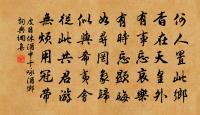 何人置此鄉
杳在天皇外
有事忘哀樂
有時忘顯晦
如尋罔象歸
似與希夷會
從此共君遊
無煩用冠帶
皮日休酒中十詠酒鄉